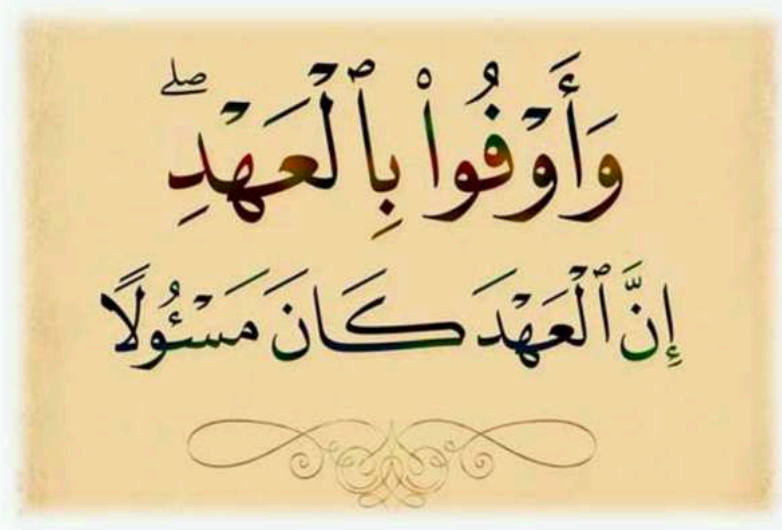 وَأَوْفُوا۟ بِٱلْعَهْدِ ۖ
إِنَّ ٱلْعَهْدَ كَانَ مَسْـُٔولًا